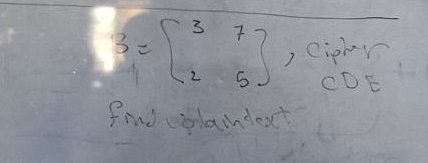 B = [3 7
2 5], Cipher
CDE
find plaintext